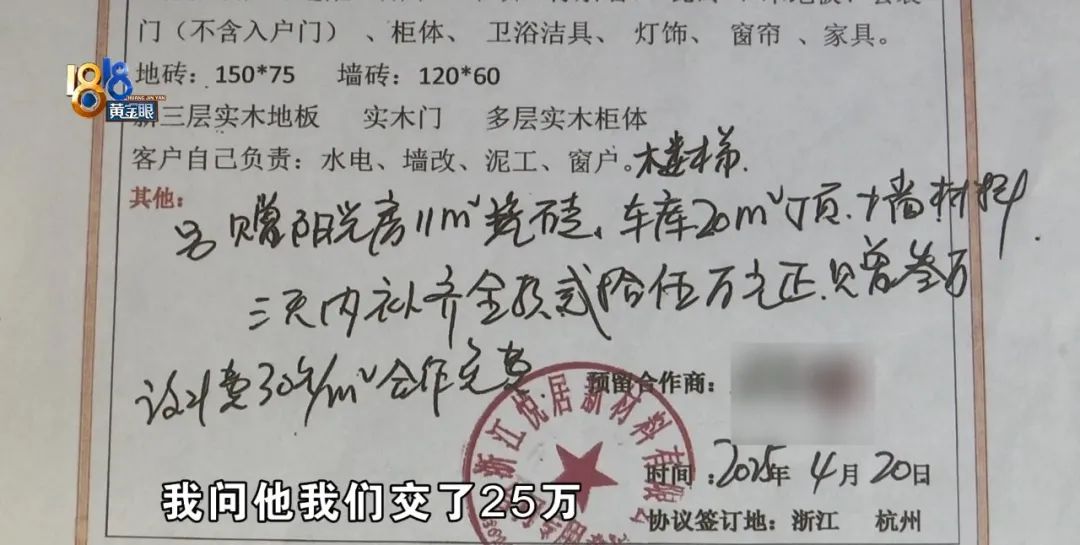 门（不含入户门）、柜体、 卫浴洁具、 灯饰、 窗帘 、家具。
地砖：150*75 墙砖：120*60
1818
黄金眼
HUANG JIN YAN
新三层实木地板 实木门 多层实木柜体
客户自己负责：水电、墙改、泥工、窗户。楼梯.
其他：
另赠阳光房11m²瓷砖、车库20m²顶.墙材料
三天内补齐全款贰拾伍万元正.赠叁万
设计费30元/m²合作免费
预留合作商：
浙江悦居新材料有限公司
时间：2025年4月20日
协议签订地：浙江 杭州
我问他我们交了25万